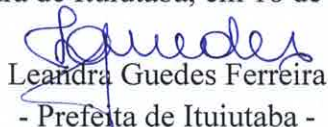 ra de Ituiutaba, em 16 de
Guedes
Leandra Guedes Ferreira
- Prefeita de Ituiutaba -